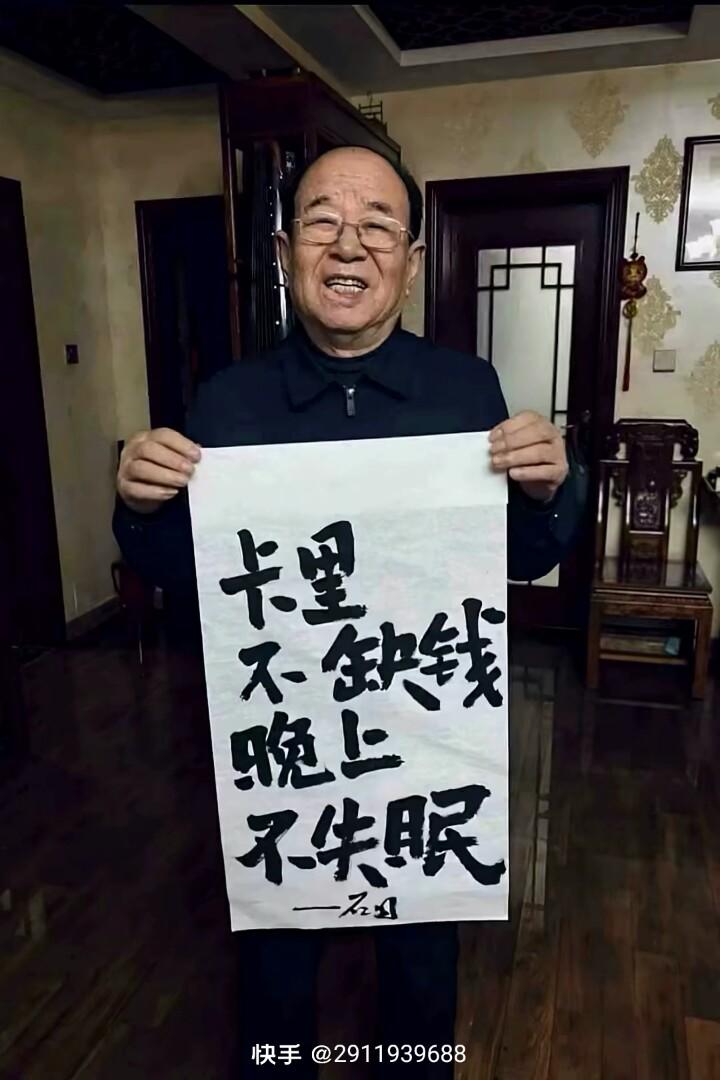 卡里
不缺钱
晚上
不失眠
快手 @2911939688